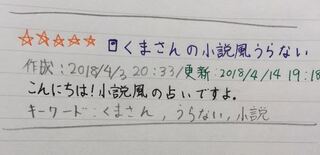 ☆☆☆☆☆ 日くまさんの小説風うらない
作成:2018/4/3 20:33/更新:2018/4/14 19:18
こんにちは!小説風の占いですよ。
キーワード:くまさん,うらない,小説